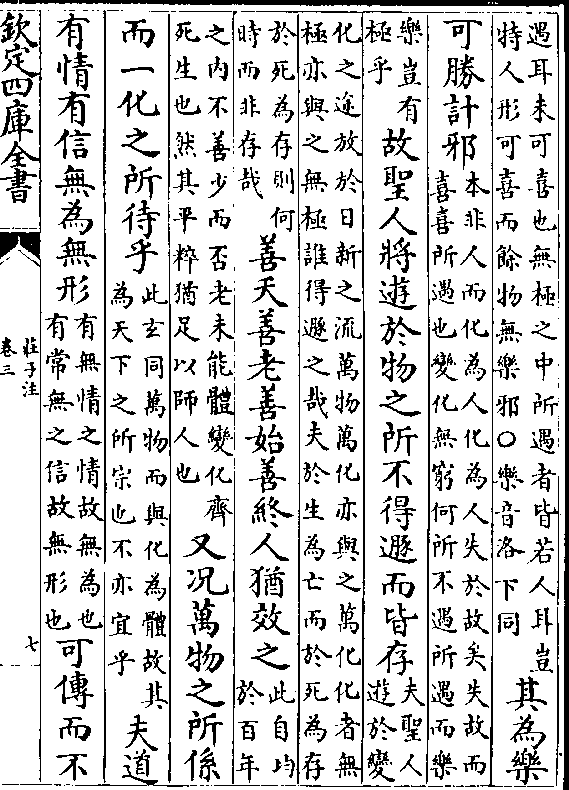 遇耳未可喜也無極之中所遇者皆若人耳豈
特人形可喜而餘物無樂邪〇樂音洛下同
其為樂
可勝計邪
本非人而化為人化為人失於故矣失故而
喜喜所遇也變化無窮何所不遇所遇而樂
樂豈有
極乎
故聖人將遊於物之所不得遯而皆存
夫聖人
遊於變
化之途放於日新之流萬物萬化亦與之萬化化者無
極亦與之無極誰得遯之哉夫於生為亡而於死為存
於死為存則何
時而非存哉
善夭善老善始善終人猶效之
此自均
於百年
之内不善少而否老未能體變化齊
死生也然其平粹猶足以師人也
又況萬物之所係
而一化之所待乎
此玄同萬物而與化為體故其
為天下之所宗也不亦宜乎
夫道
有情有信無為無形
有無情之情故無為也
有常無之信故無形也
可傳而不
欽定四庫全書
莊子注
卷三
七